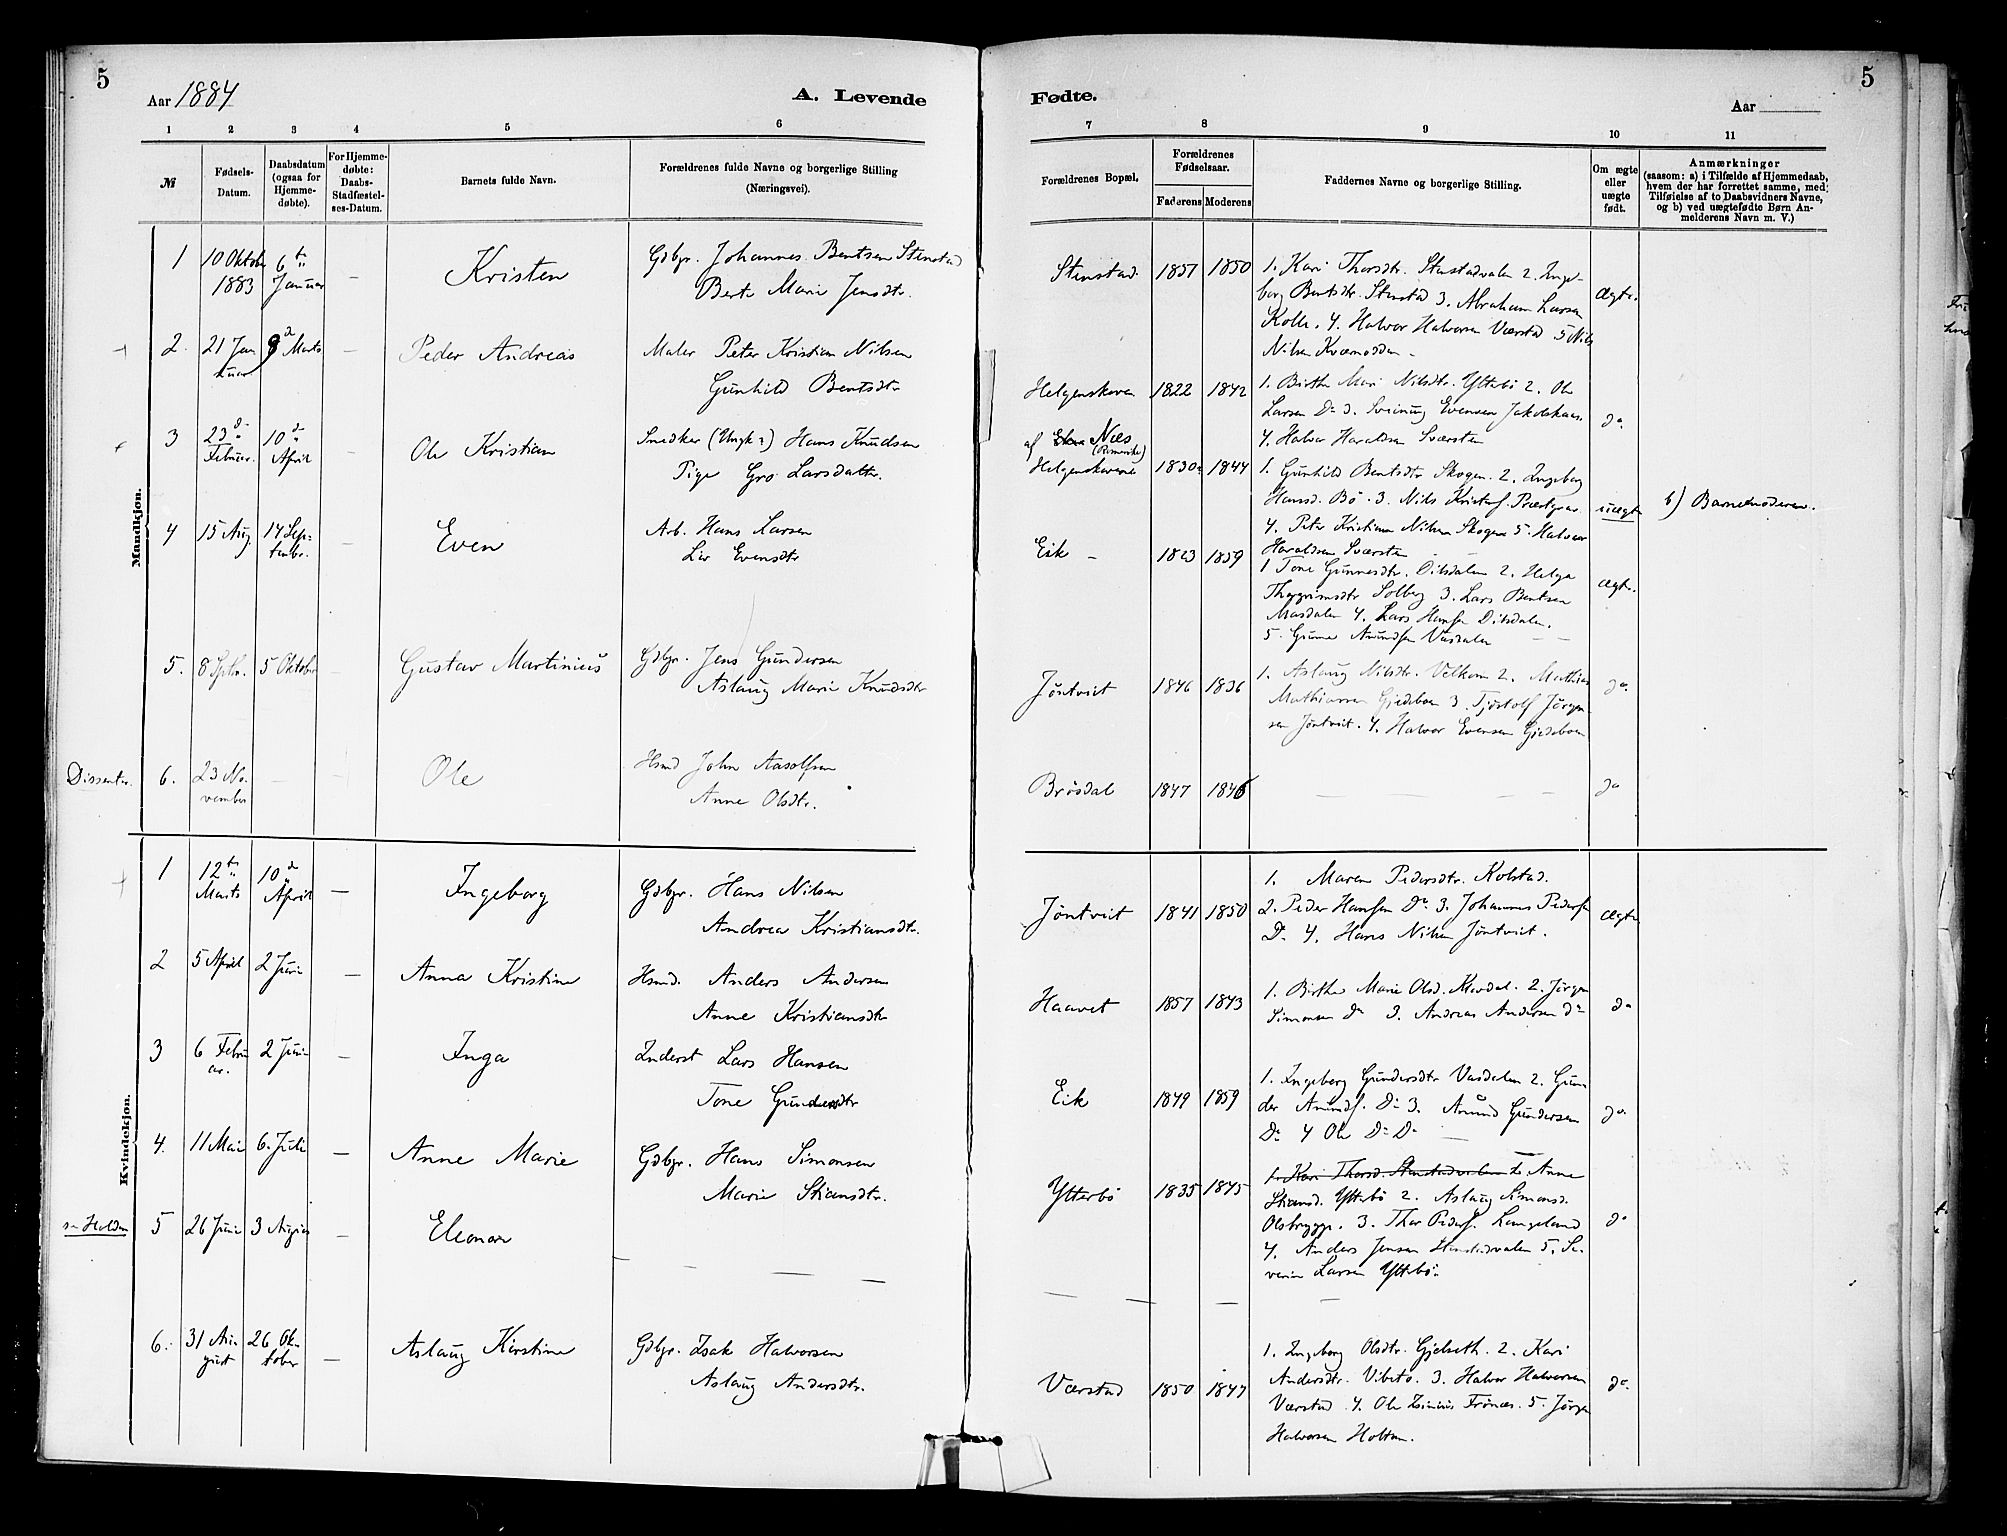 5
Aar 1884
A. Levende
1 2 3 4 5 6
№
Fødsels-
Datum.
Daabsdatum
(ogsaa for
Hjemme-
døbte).
For Hjemme-
døbte:
Daabs-
Stadfæstel-
ses-Datum.
Barnets fulde Navn.
Forældrenes fulde Navne og borgerlige Stilling
(Næringsvei).
Mandkjøn.
1 10 Oktober 1883 6te Januar — Kristen
Gdbgr. Johannes Bentsen Stenstad
Berte Marie Jensdtr.
2. 21 Januar 9d Marts — Peder Andreas
Maler Peter Kristian Nilsen
Gunhild Bentsdtr
3 23d Februar. 10d April — Ole Kristian
Snedker (Ungk?) Hans Knudsen
Pige Gro Larsdatter
4 15 Aug. 14 September. — Even
Arb. Hans Larsen
Liv Evensdtr
5. 8 Sptbr. 5 Oktober — Gustav Martinius
Gdbgr. Jens Gundersen
Aslaug Marie Knudsdtr
Dissenter. 6. 23 November — — Ole
Hsmd John Aasolfsen
Anne Olsdtr.
Kvindekjøn.
1 12te Marts 10d April — Ingeborg
Gdbgr. Hans Nilsen
Andrea Kristiansdtr.
2 5 April 2 Juni — Anna Kristine
Hsmd. Anders Andersen
Anne Kristiansdtr
3 6 Februar. 2 Juni — Inga
Inderst Lars Hansen
Tone Gundersdtr
4. 11 Mai 6. Juli — Anne Marie
Gdbgr. Hans Simonsen
Marie Stiansdtr.
se Holden 5 26 Juni 3 August — Eleonore
— — — —
6. 31 August 26 Oktober — Aslaug Kirstine
Gdbgr. Isak Halvorsen
Aslaug Andersdtr.
Fødte.
Aar
5
7 8 9 10 11
Forældrenes Bopæl.
Forældrenes
Fødselsaar.
Faderens Moderens
Faddernes Navne og borgerlige Stilling.
Om ægte
eller
uægte
født.
Anmærkninger
(saasom: a) i Tilfælde af Hjemmedaab,
hvem der har forrettet samme, med
Tilføielse af to Daabsvidners Navne,
og b) ved uægtefødte Børn An-
melderens Navn m. V.)
Stenstad. 1857 1850
1. Kari Thorsdtr. Stenstadvalen 2. Inge-
borg Bentsdtr. Stenstad 3. Abraham Larsen
Kolle. 4. Halvor Halvorsen Værstad 5 Nils
Nilsen Kværnodden –
Ægte.
Helgenskoven 1822 1842
1. Birthe Mari Nilsdtr. Yttebö 2. Ole
Larsen Do 3. Sveinug Evensen Jakobskaas.
4. Halvor Haraldsen Sværsten
do
af Næs
(Romerike)
Helgenskovene 1830 1844
1. Gunhild Bentsdtr Skogen. 2. Ingeborg
Hansd. Bö. 3. Nils Kristofs. Præstgrav
4. Peter Kristian Nilsen Skogen 5. Halvor
Haraldsen Sværsten
uægte
b) Barnemoderen.
Eik – 1823 1859
1 Tone Gunnesdtr. Dilsdalen 2. Helge
Thorgrimsdtr Solberg 3. Lars Bentsen
Masdalen 4. Lars Hansen Dilsdalen.
5. Gunne Amundsen Vasdalen
Ægte.
Jøntvit 1846 1836
1. Aslaug Nilsdtr. Velkom 2. Mathias
Mathiassen Gjedeboen 3. Tjostolf Jörgen-
sen Jøntvit. 4. Halvor Evensen Gjedeboen
do.
Brösdal 1847 1846
— — — —
do
Jøntvit 1841 1850
1. Maren Pedersdtr. Kolstad.
2. Peder Hansen Do 3. Johannes Pedersen
Do 4. Hans Nilsen Jøntvit.
Ægte
Haavet 1857 1843
1. Birthe Marie Olsd. 2. Jörgen
Simonsen do 3. Andreas Andersen do
do
Eik 1849 1859
1. Ingeborg Gundersdtr Vasdalen 2. Gun-
der Amunds. Do 3. Amund Gundersen
Do 4 Ole Do Do
do
Ytterbö 1835 1845
1. Kari Thorsd. Stenstadvalen 1. Anne
Stiansd. Yttebö 2. Aslaug Simonsd.
Olsbrygge. 3. Thor Peders. Langeland
4. Anders Jensen Stenstadvalen 5. Se-
verin Larsen Yttebö.
do
— — — —
Værstad 1850 1847
1. Ingeborg Olsdtr. Gjelseth. 2. Kari
Andersdtr. Vibeto. 3. Halvor Halvorsen
Værstad 4. Ole Frönæs. 5. Jörgen
Halvorsen Holtan.
do.